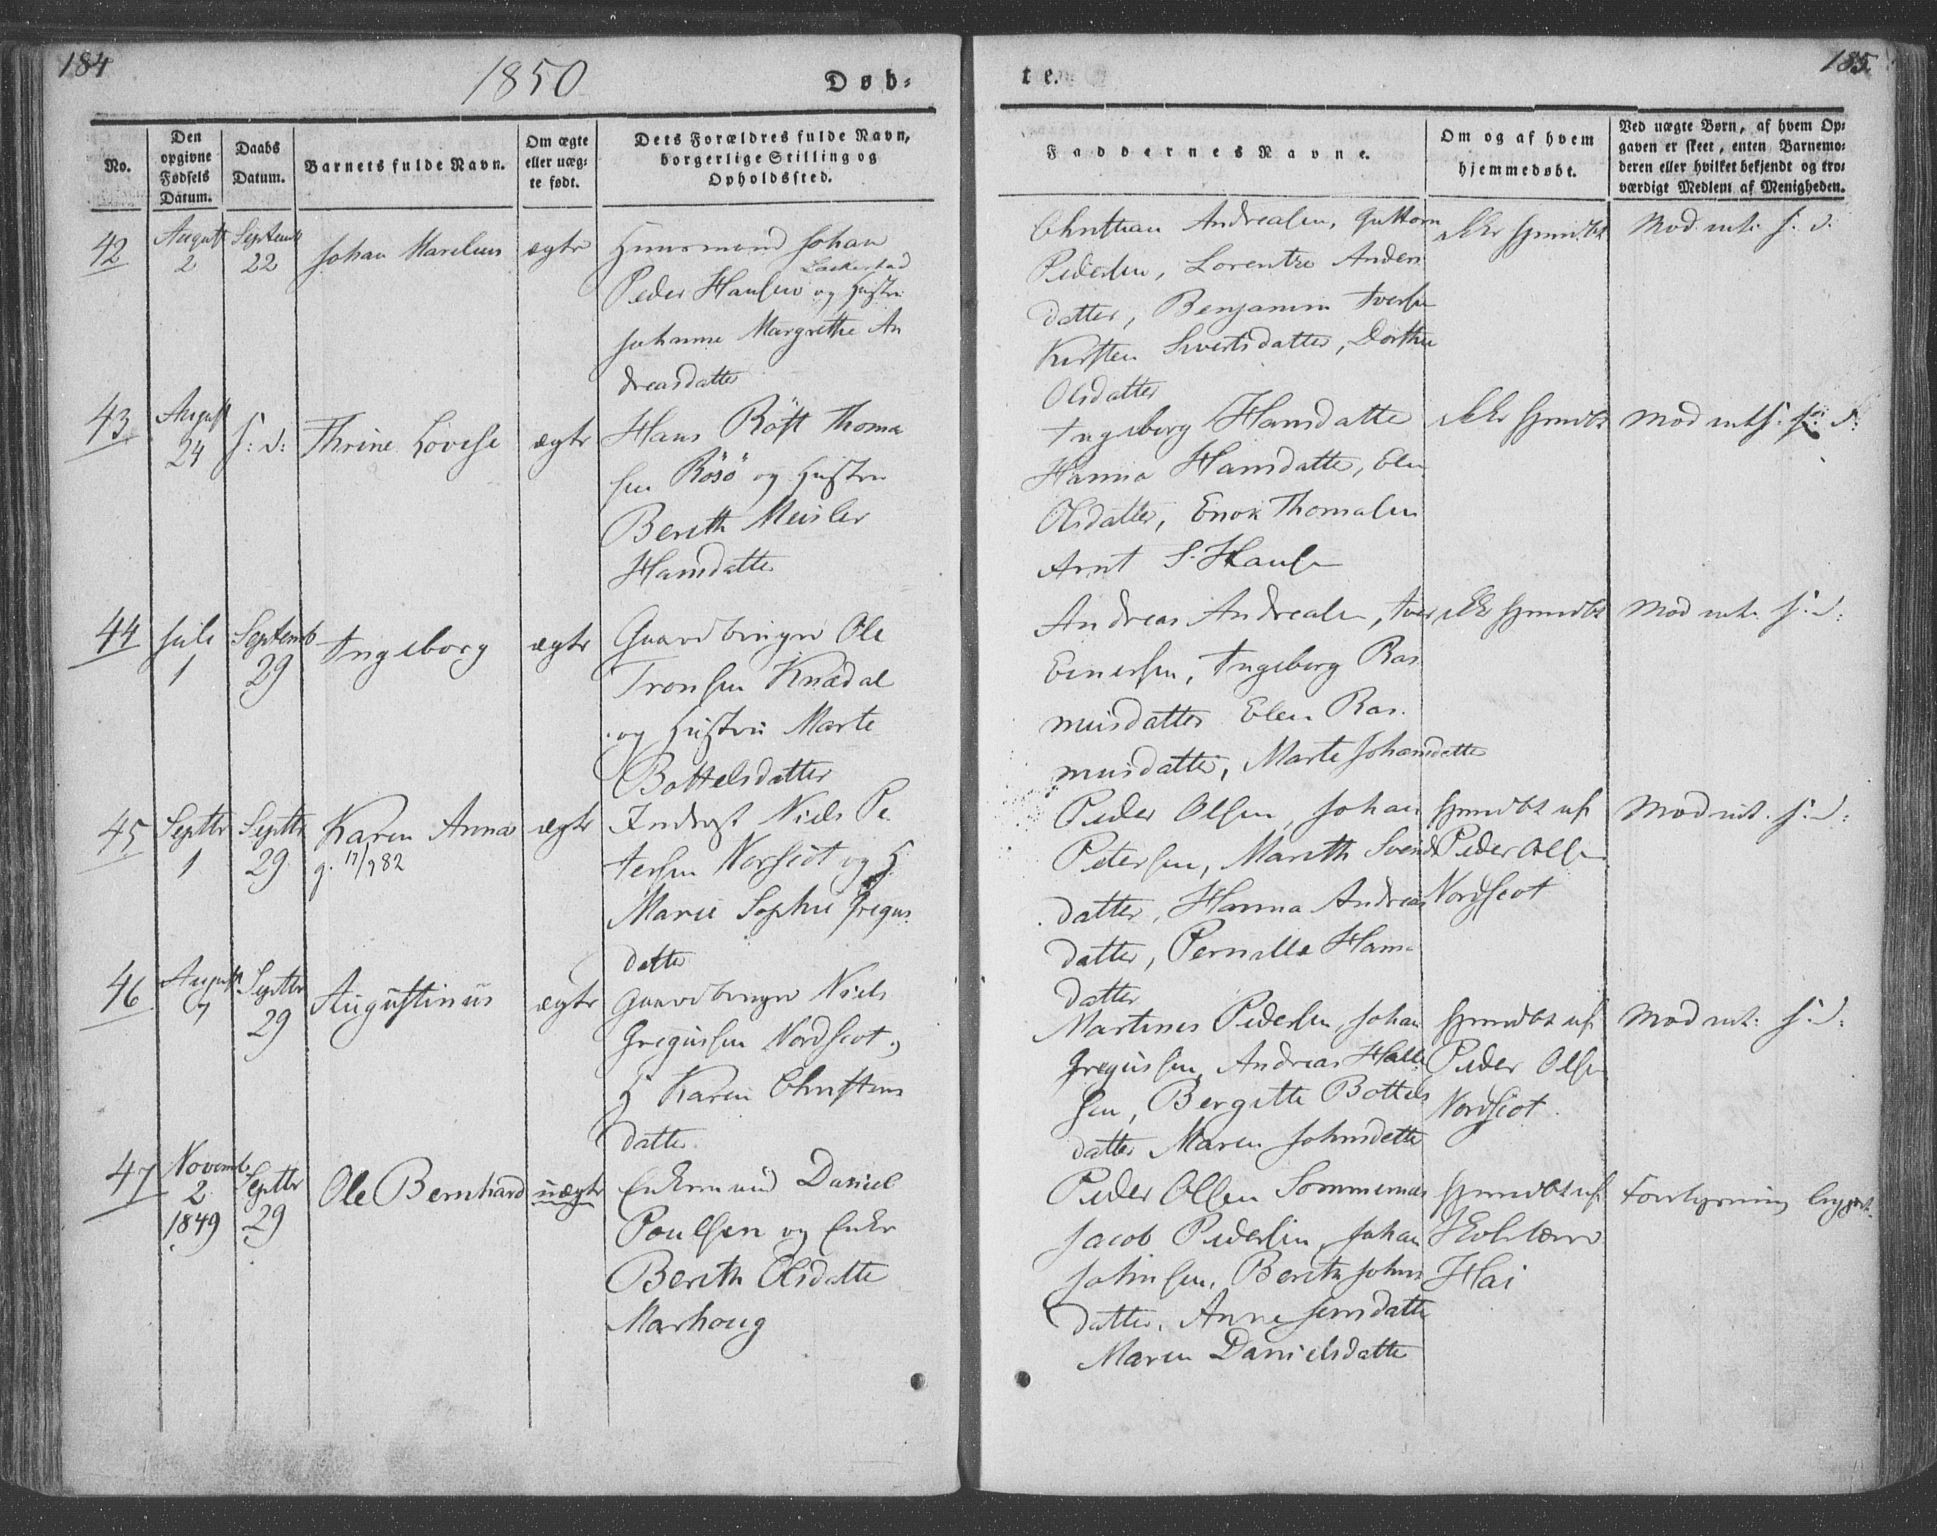 184
1850
Døb-
te.
185.
No.
Den opgivne Fødsels Datum.
Daabs Datum.
Barnets fulde Navn.
Om ægte eller uæg-
te født.
Dets Forældres fulde Navn,
borgerlige Stilling og
Opholdssted.
Faddernes Navne.
Om og af hvem
hjemmedøbt.
Ved uægte Børn, af hvem Op-
gaven er skeet, enten Barnemo-
deren eller hvilket bekjendt og tro-
værdigt Medlem af Menigheden.
42
August
2
Septemb
22
Johan Marelius
ægte
Huusmand Johan
Peder Hansen og Hustru
Johanne Margrethe An
dreasdatter
Christian Andreasen, Guttorm
Pedersen, Lorentze Anders
datter, Benjamin Iversen
Kirsten Sivertsdatter, Dorthea
Olsdatter
ikke hjmdbt
Mod. int. S. D.
43
August
24
S. D.
Thrine Lovise
ægte
Hans Röst Thoma
sen Rösö og Hustru
Bereth Meisler
Hansdatter
Ingeborg Hansdatter
Hanna Hansdatter, Elen
Olsdatter, Enok Thomasen
Arnt S. Hansen
ikke hjmdbt
Mod int. S. D.
44
Juli
1
Septemb
29
Ingeborg
ægte
Gaardbruger Ole
Tronsen Knædal
og Hustru Marte
Bottelsdatter
Andreas Andreasen, Iver
Einersen, Ingeborg Ras
musdatter Elen Ras
musdatter, Marte Johansdatter
ikke hjmdbt
Mod int. S. D.
45
Septbr
1
Septbr
29
Karen Anna
g. 17/982
ægte
Inderst Niels Pe
tersen Nordscot og H.
Marie Sophie Gregus
datter
Peder Olsen, Johan
Petersen, Mareth Svends
datter, Hanna Andreas
datter, Pernille Hans
datter
hjmdbt af
Peder Olsen
Nordscot
Mod int. S. D.
46
August
7
Septbr
29
Augustinus
ægte
Gaardbruger Niels
Gregussen Nordscot og
H. Karen Christens
datter
Martines Pedersen, Johan
Gregussen, Andreas Hall
sen, Bergitte Bottels
datter Maren Johnsdatter
hjmdbt af
Peder Olsen
Nordscot
Mod int. S. D.
47
Novemb
2
1849
Septbr
29
Ole Bernhard
uægte
Enkemand Daniel
Poulsen og Enke
Bereth Olsdatter
Marhoug
Peder Olsen Sommernæs
Jacob Pedersen, Johan
Johnsen, Bereth Johns
datter, Anne Jensdatter
Maren Danielsdatter
hjmdbt af
Skolelærer
Hai